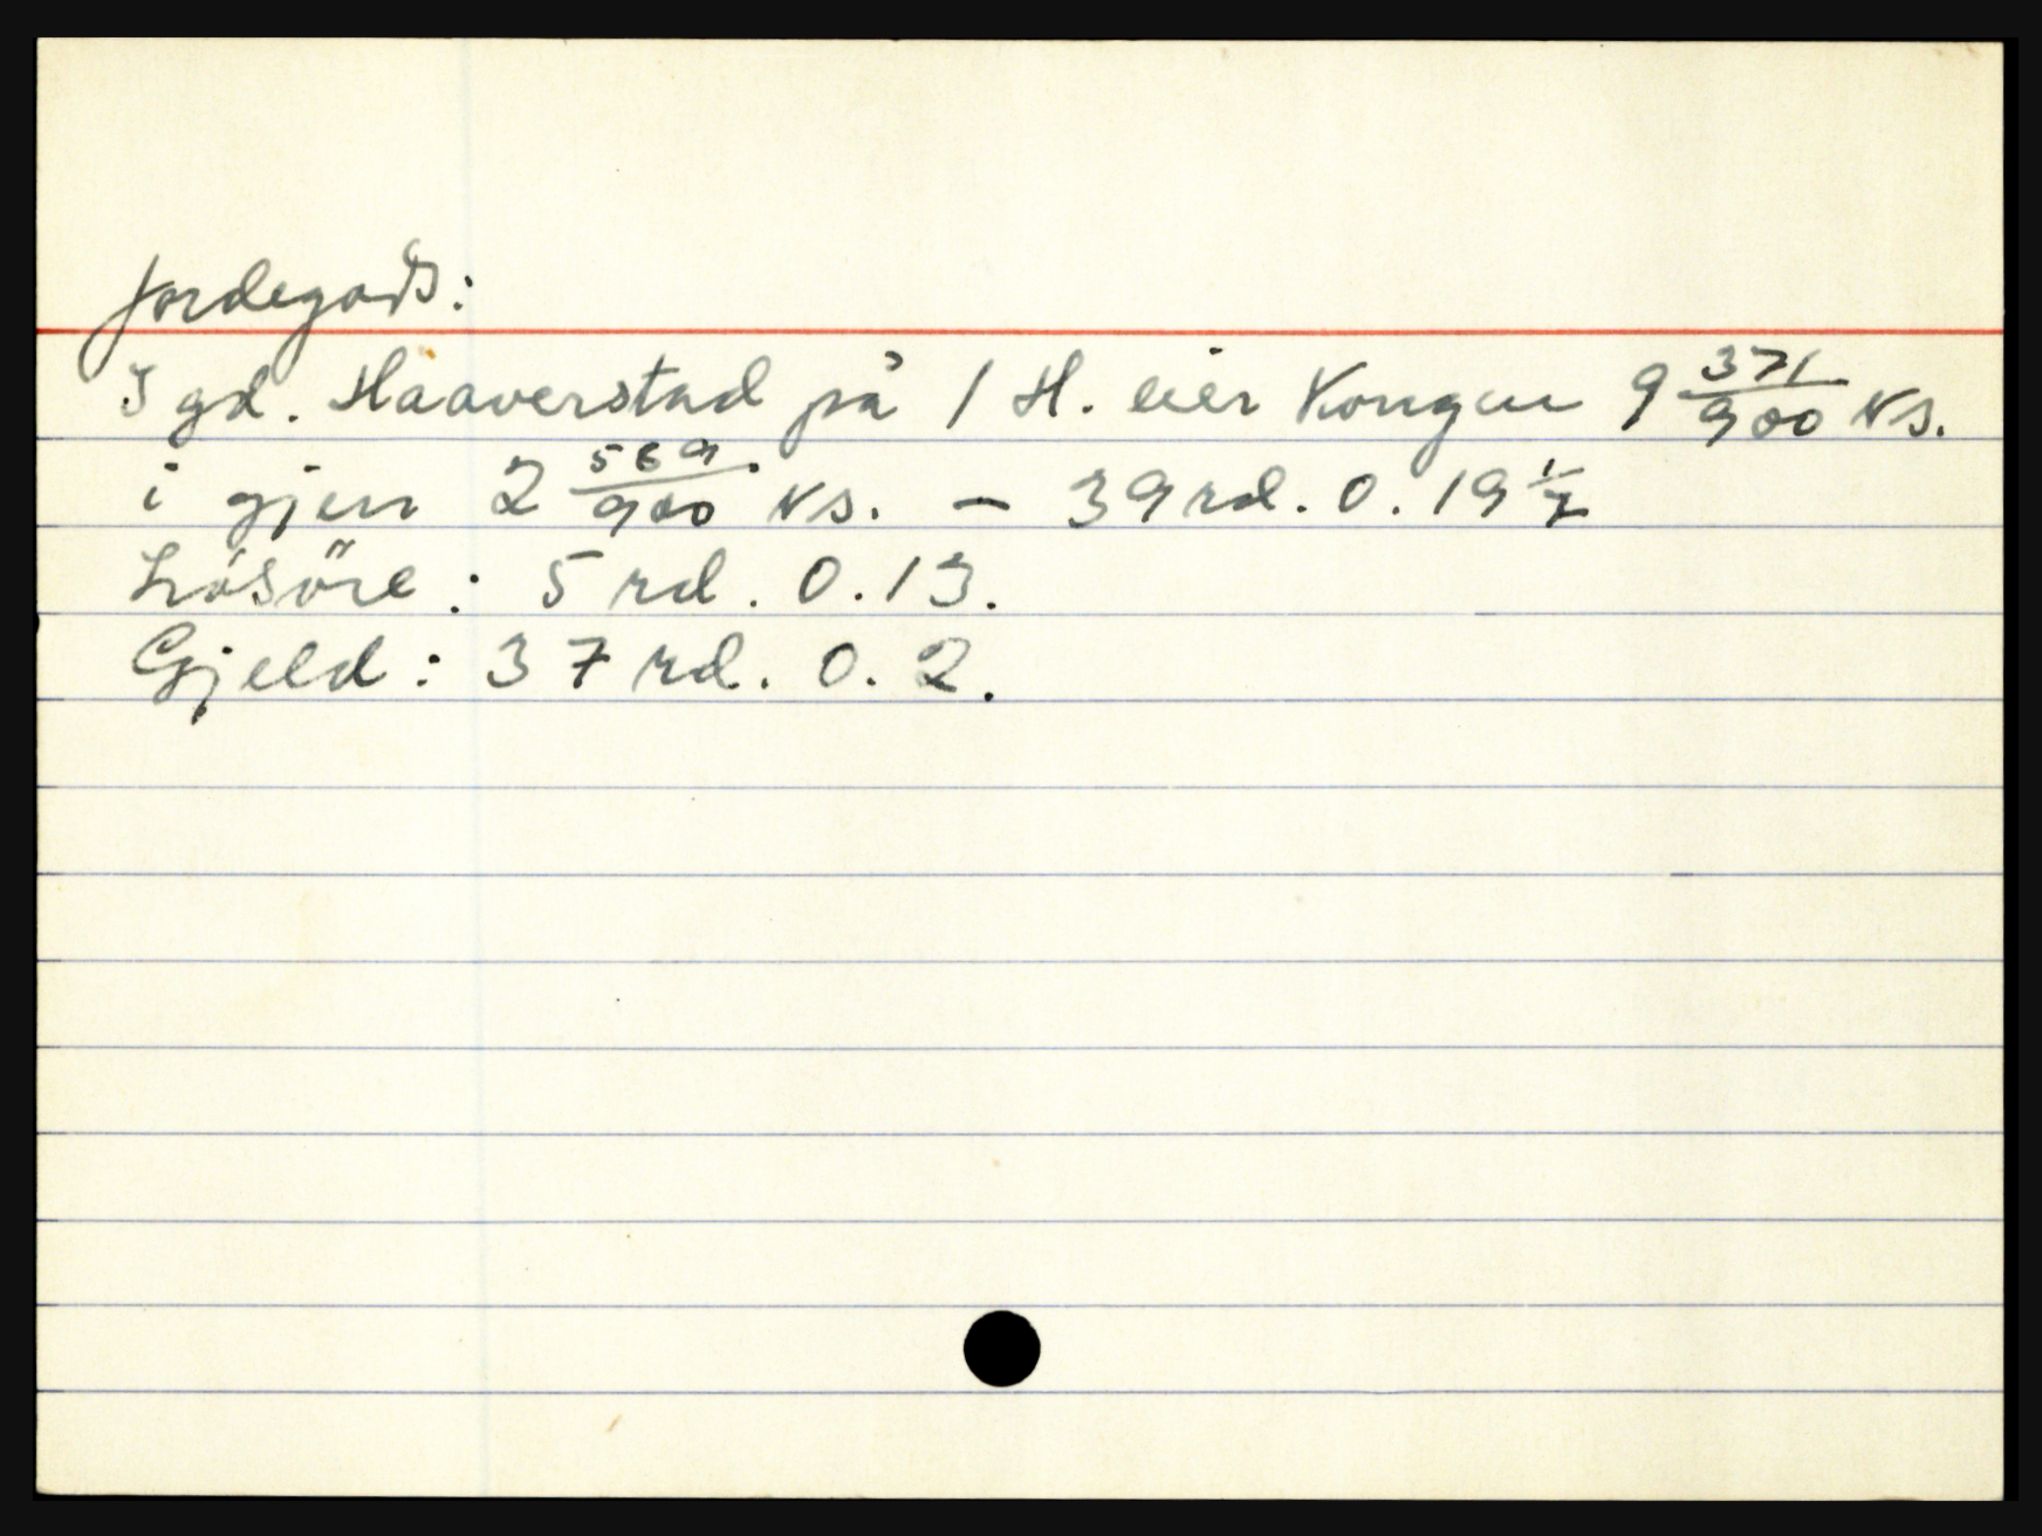 Jordegods:
I gd. Haaverstad på 1 H. eier Kongen 9 371/900 ks.
i gjen 2 569/900 ks. - 39 rd. 0. 19 1/2
Lösöre: 5 rd. 0. 13.
Gjeld: 37 rd. 0. 2.